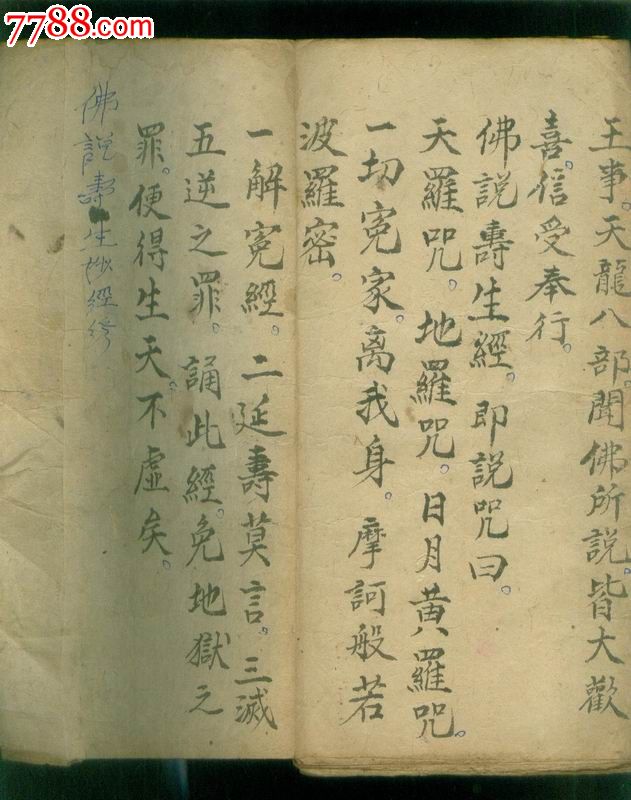 7788.com
王事。天龍八部。聞佛所說。皆大歡
喜。信受奉行。
佛說壽生經。即説咒曰。
天羅咒。地羅咒。日月黃羅咒。
一切冤家。离我身。摩訶般若
波羅密。
一解冤經。二延壽莫言。三滅
五逆之罪。誦此經。免地獄之
罪。便得生天。不虛矣。
佛說壽生妙經